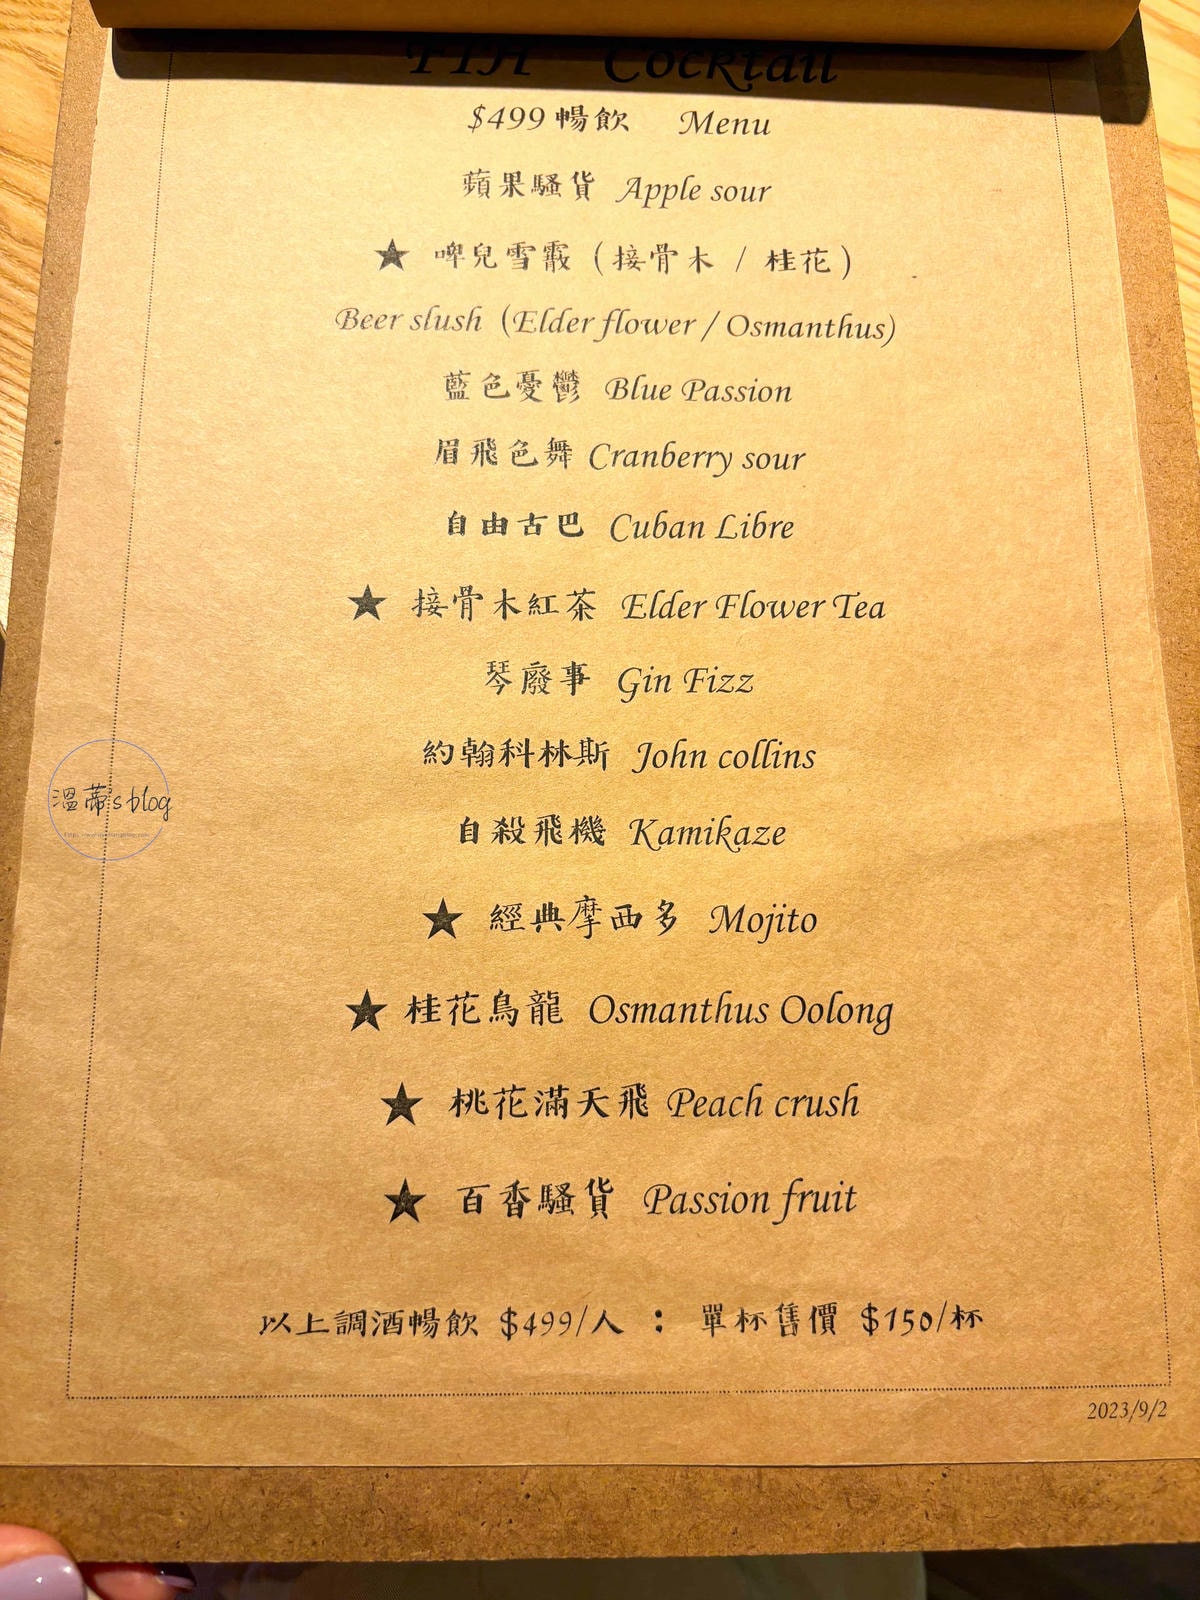 FTH Cocktail
$499 暢飲 Menu
蘋果騷貨 Apple sour
★ 啤兒雪霰 (接骨木 / 桂花)
Beer slush (Elder flower / Osmanthus)
藍色憂鬱 Blue Passion
眉飛色舞 Cranberry sour
自由古巴 Cuban Libre
★ 接骨木紅茶 Elder Flower Tea
琴廢事 Gin Fizz
約翰科林斯 John collins
自殺飛機 Kamikaze
溫蒂's blog
★ 經典摩西多 Mojito
★ 桂花鳥龍 Osmanthus Oolong
★ 桃花滿天飛 Peach crush
★ 百香騷貨 Passion fruit
以上調酒暢飲 $499/人 : 單杯售價 $150/杯
2023/9/2